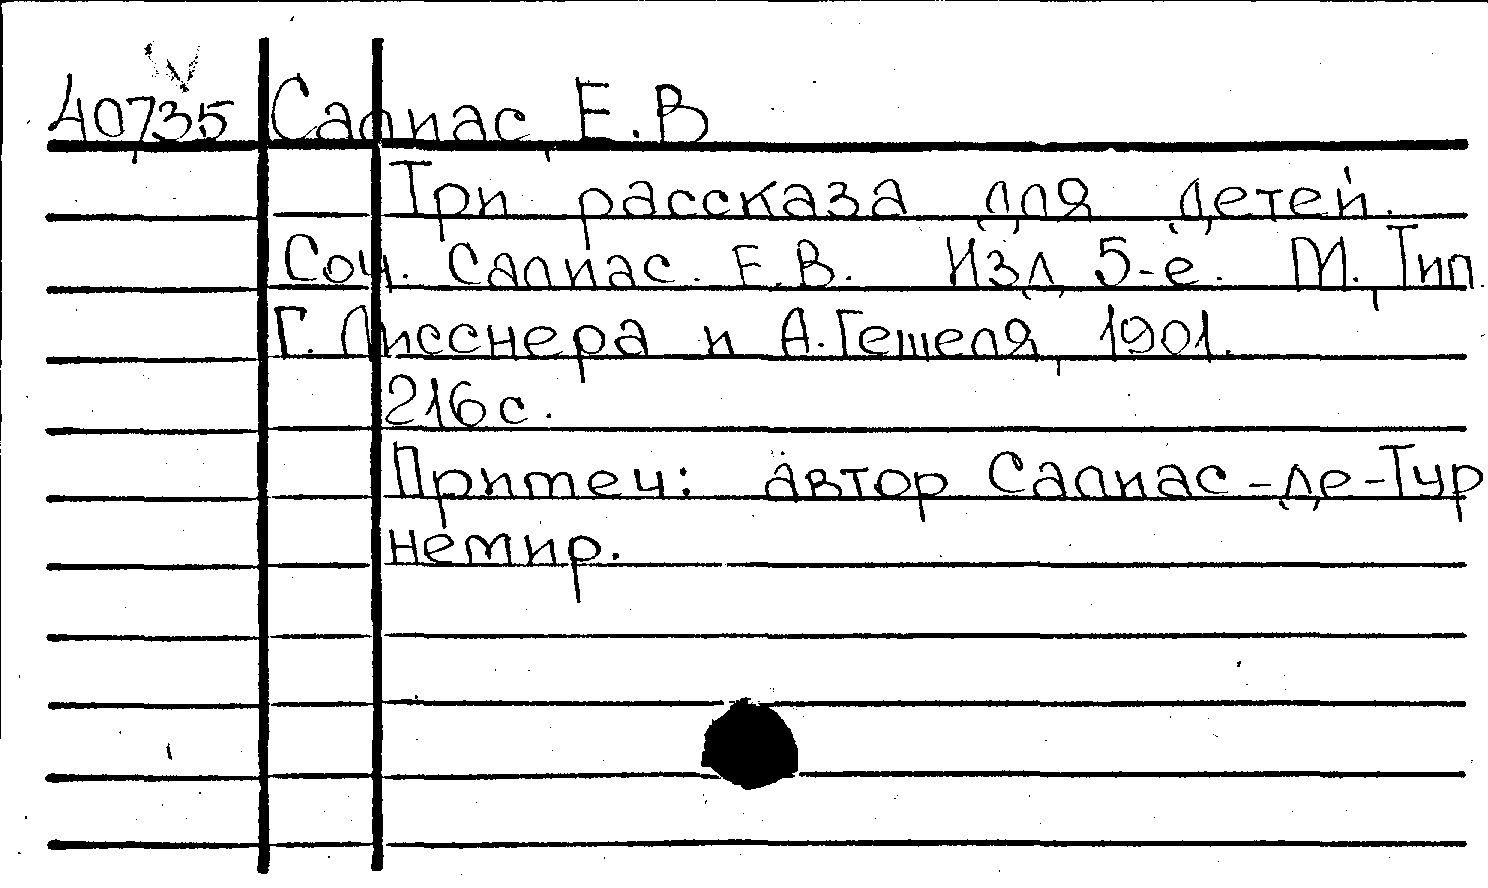 40735 Салиас, Е.В
Три рассказа для детей.
Соч. Салиас. Е.В. Изд 5-е. М., Тип
Г. Лисснера и А.Гешеля, 1901.
216 с.
Примеч: автор Салиас-де-Тур
немир.